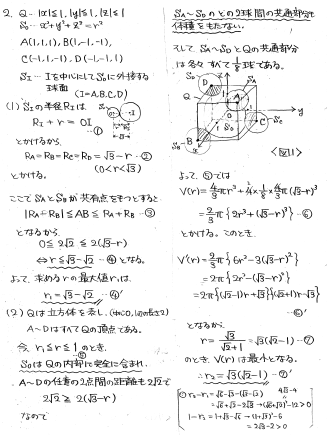 2. Q… |x|≦1, |y|≦1, |z|≦1
S₀… x²+y²+z²=r²
A(1,1,1), B(1,-1,-1),
C(-1,1,-1), D(-1,-1,1)
S_I … Iを中心にしてS₀に外接する
球面 (I=A,B,C,D)
(1) S_Iの半径R_Iは
R_I + r = OI ①
とかけるから
R_A=R_B=R_C=R_D=√3-r …②
とかける。 (0<r<√3)
ここでS_AとS_Bが共有点をもつとすると
|R_A-R_B|≦AB≦R_A+R_B …③
となるから
0≦2√2≦2(√3-r)
⇔ r≦√3-√2 …④ となる。
よって、求めるrの最大値r₁は、
r₁=√3-√2 …④'
(2) Qは立方体を表し、(中心O, 1辺の長さ2)
A〜DはすべてQの頂点である。
今、r₁≦r≦1のとき、
S₀はQの内部に完全に含まれ、⑤
A〜Dの任意の2点間の距離も2√2で
2√2≧2(√3-r)
なので
S_A〜S_Dのどの2球間の共通部分も
体積をもたない。
そしてS_A〜S_DとQの共通部分
は各々すべて1/8球である。
Q
D
S_A
A
y
S_B
B
C
S_C
x
<図1>
よって、⑤では
V(r)=4/3πr³+4×1/8×4/3π(√3-r)³
=2/3π{2r³+(√3-r)³} …⑥
とかける。このとき、
V'(r)=2/3π{6r²-3(√3-r)²}
=2π{2r²-(√3-r)²}
=2π{(√2-1)r+√3}{(√2+1)r-√3}
⑥'
となるから、
r=√3/(√2+1)=√3(√2-1) …⑦
のとき、V(r)は最小となる。
∴ r₂=√3(√2-1) …⑦'